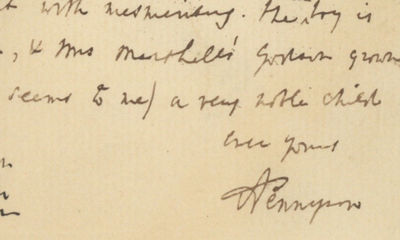 with mesmerising. The boy is
, & Mrs Marshall's Godson grown
seems to me) a very noble child
Ever yours
ATennyson